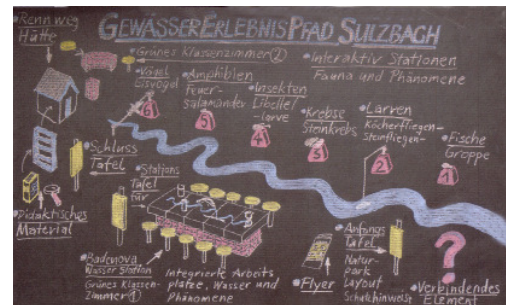 GEWÄSSERERLEBNISPFAD SULZBACH
Rennweg
Hütte
Grünes Klassenzimmer ②
Interaktiv Stationen
Fauna und Phänomene
Vögel
Eisvogel
6
Amphibien
Feuer-
salamander
5
Insekten
Libelle/-
larve
4
Krebse
Steinkrebs
3
Larven
Köcherfliegen-
Steinfliegen-
2
Fische
Groppe
1
Schluss
Tafel
Stations
Tafel
für
Didaktisches
Material
Badenova
Wasser Station
Grünes Klassen-
Zimmer ①
Integrierte Arbeits
platte, Wasser und
Phänomene
Flyer
Anfangs
Tafel
Natur-
park
Layout
Schutzhinweise
?
Verbindendes
Element